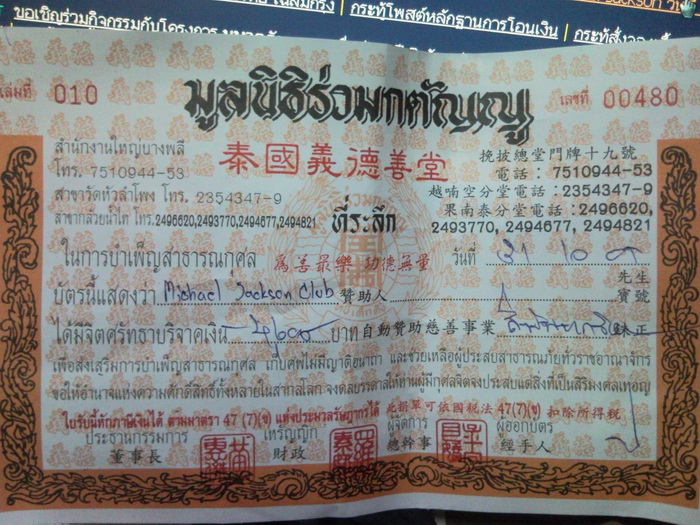 ขอเชิญร่วมกิจกรรมกับโครงการ | กระทู้โพสต์หลักฐานการโอนเงิน |
เล่มที่ 010
มูลนิธิร่วมกตัญญู
เลขที่ 00480
สำนักงานใหญ่บางพลี
โทร. 7510944-53
สาขาวัดหัวลำโพง โทร. 2354347-9
สาขากล้วยน้ำไท โทร.2496620,2493770,2494677,2494821
泰國義德善堂
ที่ระลึก
挽拔總堂門牌十九號
電話：7510944-53
越喃空分堂電話：2354347-9
果南泰分堂電話：2496620,
2493770, 2494677, 2494821
ในการบำเพ็ญสาธารณกุศล 為善最樂 功德無量 วันที่ 31 10
先生
บัตรนี้แสดงว่า Michael Jackson Club 贊助人 寶號
ได้มีจิตศรัทธาบริจาคเงิน บาท 自動贊助慈善事業 銖正
เพื่อส่งเสริมการบำเพ็ญสาธารณกุศล เก็บศพไม่มีญาติอนาถา และช่วยเหลือผู้ประสบสาธารณภัยทั่วราชอาณาจักร
ขอให้อำนาจแห่งความศักดิ์สิทธิ์ทั้งหลายในสากลโลก จงดลบรรดาลให้ท่านผู้มีกุศลจิตจงประสบแต่สิ่งที่เป็นสิริมงคลเทอญ
ใบรับนี้หักภาษีเงินได้ ตามมาตรา 47 (7)(ข) แห่งประมวลรัษฎากรได้ 此捐單可依國稅法 47(7)(ข) 扣除所得稅
ประธานกรรมการ เหรัญญิก ผู้จัดการ ผู้ออกบัตร
董事長 財政 總幹事 經手人